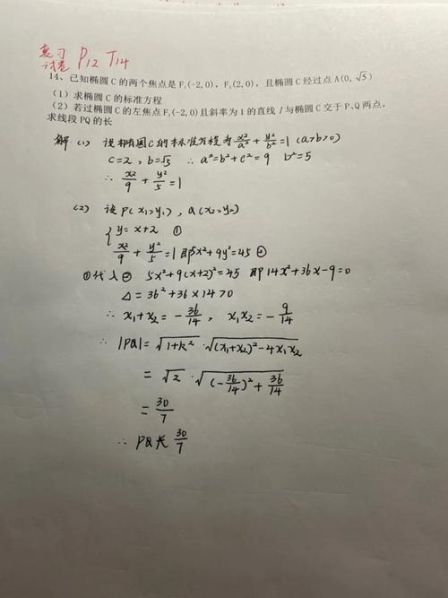 复习 P12 T14
试卷
14、已知椭圆 C 的两个焦点是 F₁(-2,0)，F₂(2,0)，且椭圆 C 经过点 A(0, √5)
（1）求椭圆 C 的标准方程
（2）若过椭圆 C 的左焦点 F₁(-2,0)且斜率为 1 的直线 l 与椭圆 C 交于 P、Q 两点，
求线段 PQ 的长
解 (1) 设椭圆C的标准方程为 x²/a² + y²/b² = 1 (a>b>0)
c=2, b=√5 ∴ a²=b²+c²=9 b²=5
∴ x²/9 + y²/5 = 1
(2) 设 P(x₁,y₁), Q(x₂,y₂)
{ y=x+2 ①
x²/9 + y²/5 = 1 即5x²+9y²=45 ②
①代入② 5x²+9(x+2)²=45 即 14x²+36x-9=0
Δ=36²+36×14>0
∴ x₁+x₂=-36/14, x₁x₂=-9/14
∴ |PQ|=√(1+k²)·√((x₁+x₂)²-4x₁x₂)
=√2·√((-36/14)²+36/14)
=30/7
∴ PQ长 30/7